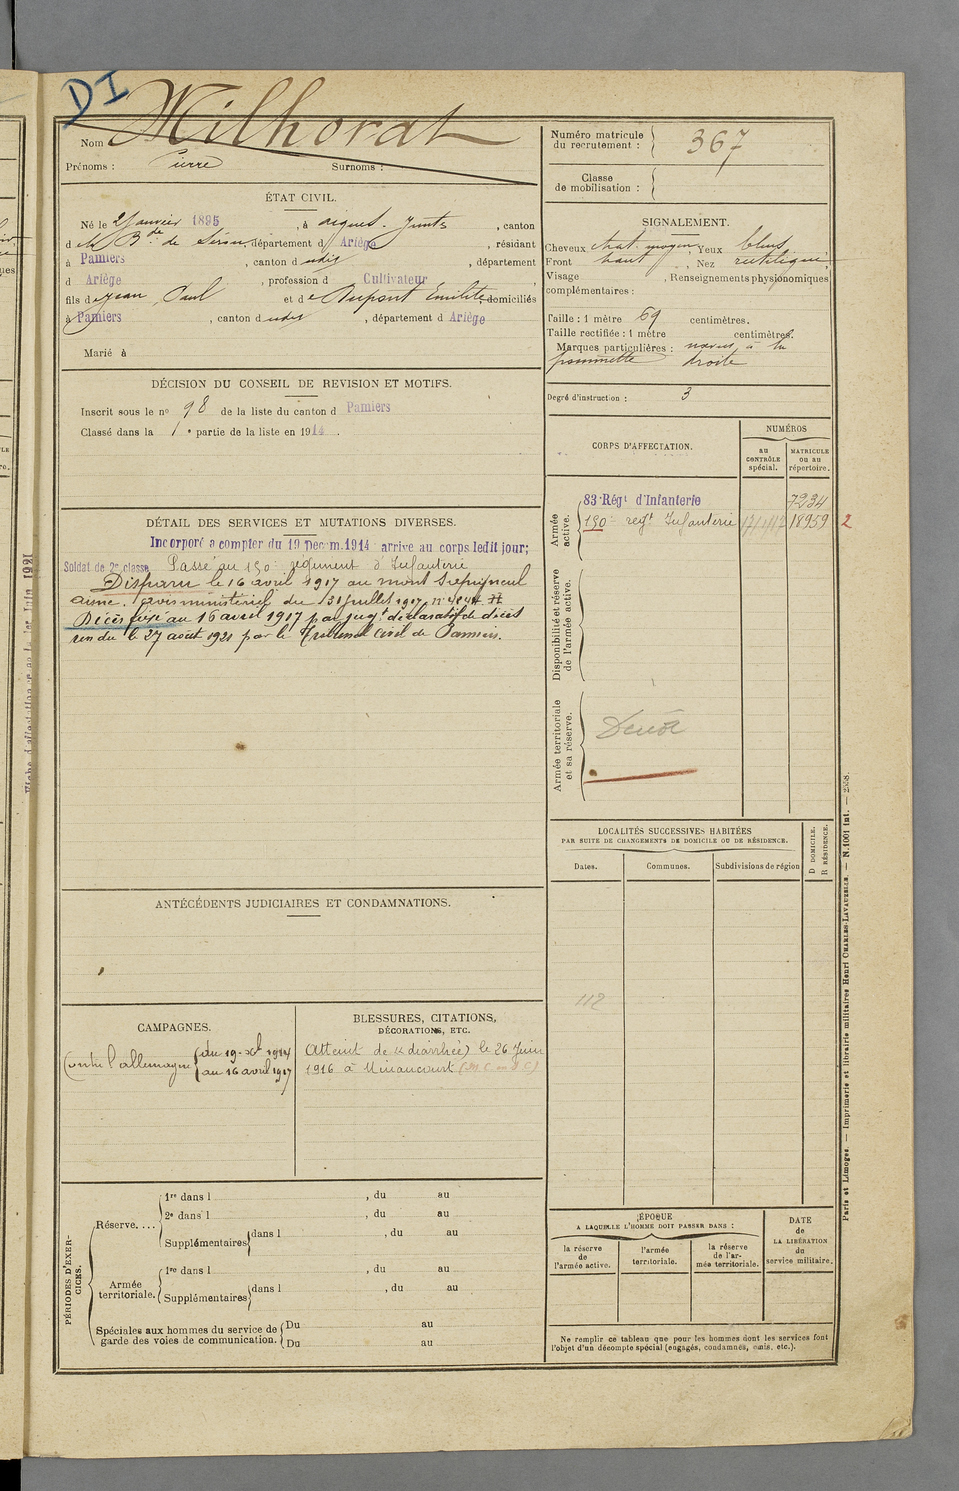 DI
Nom Milhorat
Prénoms : Pierre Surnoms :
ÉTAT CIVIL.
Né le 2 Janvier 1895, à Aigues-Juntes, canton
d e la Bde de Séron, département d Ariège, résidant
à Pamiers, canton d udis, département
d Ariège, profession d Cultivateur
fils de Jean Paul et de Dupont Emilie, domiciliés
à Pamiers, canton d udis, département d Ariège
Marié à
DÉCISION DU CONSEIL DE REVISION ET MOTIFS.
Inscrit sous le n° 98 de la liste du canton d Pamiers
Classé dans la 1e partie de la liste en 1914.
DÉTAIL DES SERVICES ET MUTATIONS DIVERSES.
Incorporé à compter du 19 Décem. 1914 arrivé au corps ledit jour;
Soldat de 2e classe Passé au 190e régiment d'Infanterie
Disparu le 16 avril 1917 au mont
avis ministériel du 31 Juillet 1917 n°
Décès fixé au 16 avril 1917 par jugt déclaratif de décès
rendu le 27 août 1921 par le Tribunal Civil de Pamiers.
ANTÉCÉDENTS JUDICIAIRES ET CONDAMNATIONS.
CAMPAGNES.
Contre l'allemagne du 19-Xbre 1914
au 16 avril 1917
BLESSURES, CITATIONS,
DÉCORATIONS, ETC.
Atteint de (diarrhée) le 26 Juin
1916 à Minaucourt
PÉRIODES D'EXERCICES.
Réserve....
1re dans l , du au
2e dans l , du au
Supplémentaires dans l , du au
Armée territoriale.
1re dans l , du au
Supplémentaires dans l , du au
Spéciales aux hommes du service de garde des voies de communication.
Du au
Du au
Numéro matricule du recrutement : 367
Classe de mobilisation :
SIGNALEMENT.
Cheveux chat. moyen, Yeux bleus
Front haut, Nez rectiligne,
Visage , Renseignements physionomiques
complémentaires :
Taille : 1 mètre 69 centimètres.
Taille rectifiée : 1 mètre centimètres.
Marques particulières : nævus à la
pommette droite
Degré d'instruction : 3
CORPS D'AFFECTATION.
NUMÉROS
au CONTRÔLE spécial.
MATRICULE ou au répertoire.
Armée active.
83e Régt d'Infanterie 7234
190e regt Infanterie 18959 2
Disponibilité et réserve de l'armée active.
Armée territoriale et sa réserve.
LOCALITÉS SUCCESSIVES HABITÉES
PAR SUITE DE CHANGEMENTS DE DOMICILE OU DE RÉSIDENCE.
Dates. Communes. Subdivisions de région
D DOMICILE.
R RÉSIDENCE.
112
ÉPOQUE
A LAQUELLE L'HOMME DOIT PASSER DANS :
la réserve de l'armée active.
l'armée territoriale.
la réserve de l'armée territoriale.
DATE de LA LIBÉRATION du service militaire.
Ne remplir ce tableau que pour les hommes dont les services font
l'objet d'un décompte spécial (engagés, condamnés, omis, etc.).
Paris et Limoges. — Imprimerie et librairie militaires Henri CHARLES-LAVAUZELLE. — N. 1001 int. — 2558.